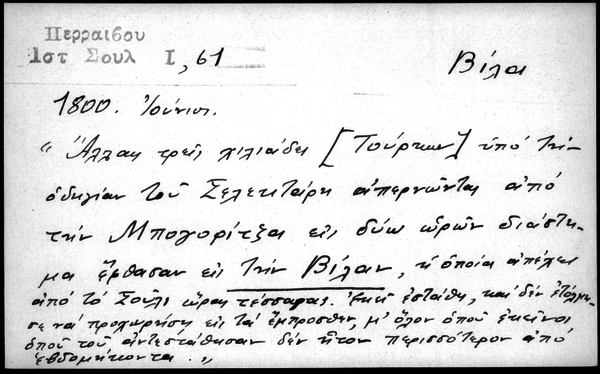 Περραιβου
Ιστ Σουλ Ι, 61
Βίλα
1800. Ἰούνιος.
"Ἄλλαι τρεῖς χιλιάδες [Τούρκων] ὑπό τήν
ὁδηγίαν τοῦ Σελεκτάρη ἀπερνῶνται ἀπό
τήν Μπογορίτζα εἰς δύω ὡρῶν διάστη-
μα ἔφθασαν εἰς τήν Βίλαν, ἡ ὁποία ἀπέχει
ἀπό τό Σοῦλι ὥρας τέσσαρας. Ἐκεῖ ἐστάθη, καί δέν ἐτόλμη-
σε νά προχωρήσῃ εἰς τά ἔμπροσθεν, μ' ὅλον ὁπού ἐκεῖνοι
ὁπού τοῦ ἀντεστάθησαν δέν ἦτον περισσότερον ἀπό
ἑβδομήκοντα."